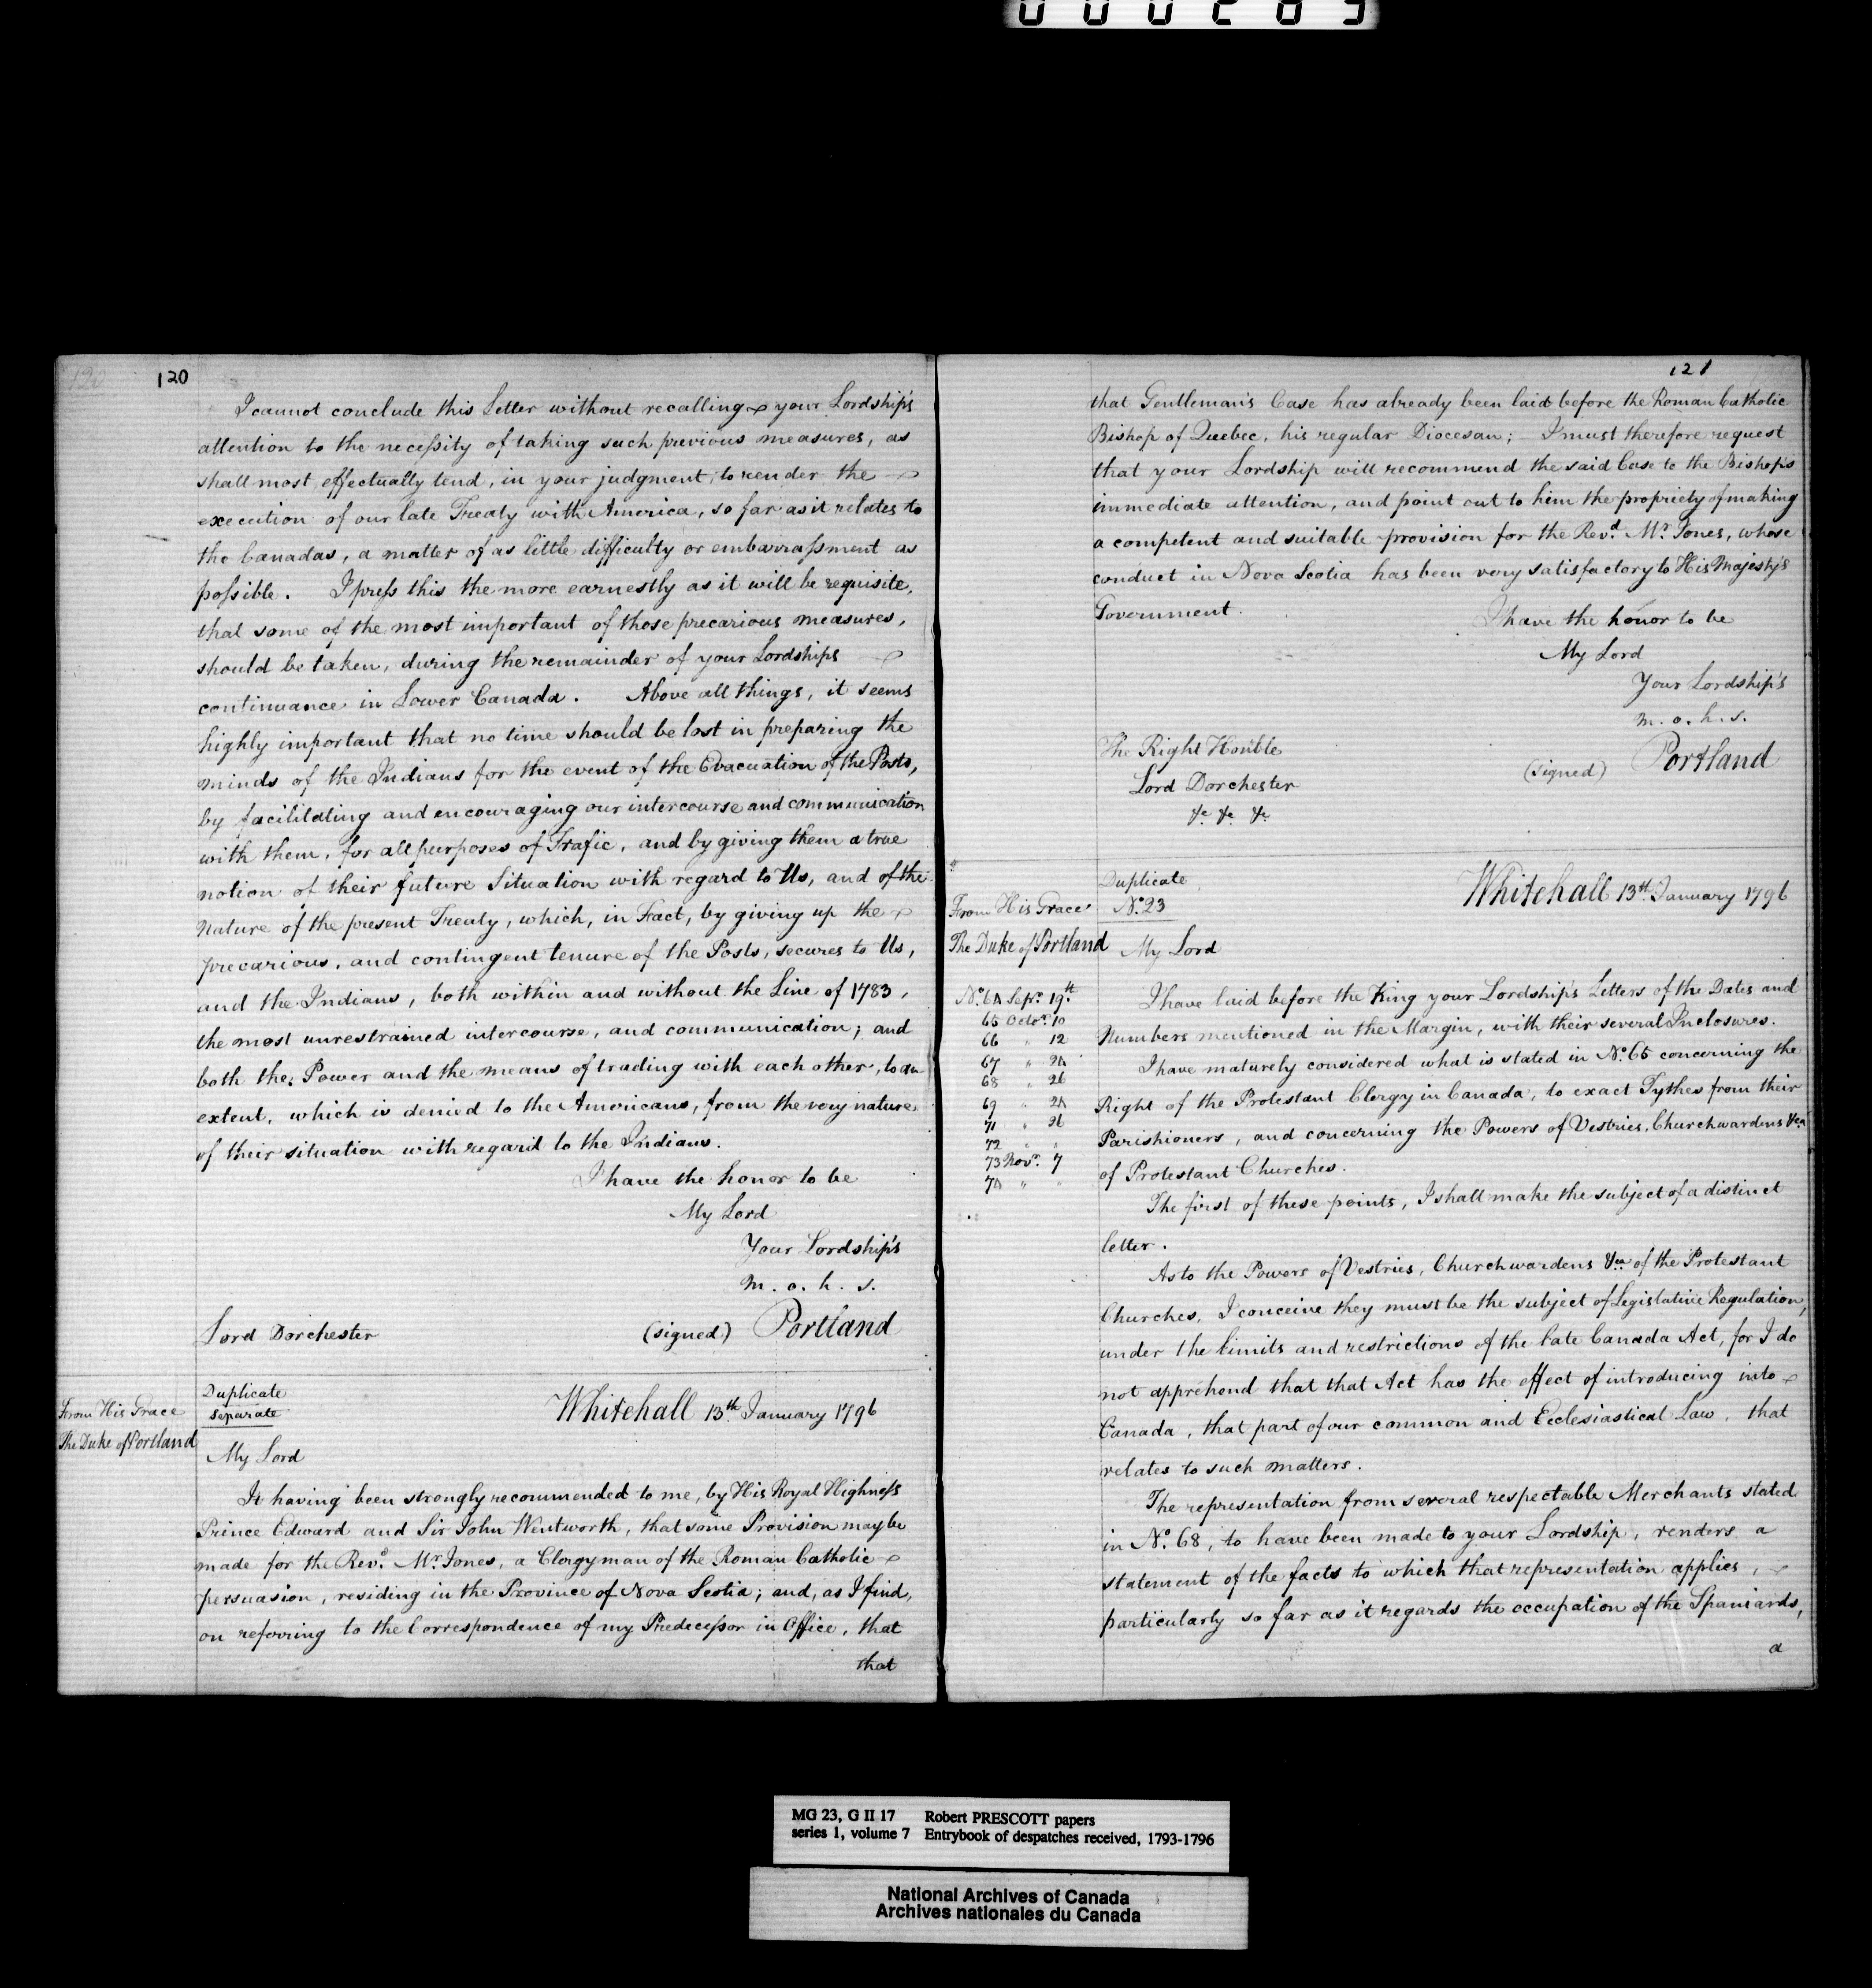 000283
120
I cannot conclude this Letter without recalling your Lordship's
attention to the necessity of taking such previous measures, as
shall most effectually tend, in your judgment, to render the
execution of our late Treaty with America, so far as it relates to
the Canadas, a matter of as little difficulty or embarrassment as
possible. I press this the more earnestly as it will be requisite,
that some of the most important of those precarious measures,
should be taken, during the remainder of your Lordships
continuance in Lower Canada. Above all things, it seems
highly important that no time should be lost in preparing the
minds of the Indians for the event of the Evacuation of the Posts,
by facilitating and encouraging our intercourse and communication
with them, for all purposes of Trafic, and by giving them a true
notion of their future Situation with regard to Us, and of the
Nature of the present Treaty, which, in Fact, by giving up the
precarious, and contingent tenure of the Posts, secures to Us,
and the Indians, both within and without the Line of 1783,
the most unrestrained intercourse, and communication; and
both the Power and the means of trading with each other, to an
extent, which is denied to the Americans, from the very nature
of their situation with regard to the Indians.
I have the honor to be
My Lord
Your Lordship's
m. o. h. s.
Lord Dorchester (signed) Portland
From His Grace
The Duke of Portland
Duplicate
Separate
Whitehall 13th January 1796
My Lord
It having been strongly recommended to me, by His Royal Highness
Prince Edward and Sir John Wentworth, that some Provision may be
made for the Revd. Mr Jones, a Clergyman of the Roman Catholic
persuasion, residing in the Province of Nova Scotia; and, as I find,
on referring to the Correspondence of my Predecessor in Office, that
that
121
that Gentleman's Case has already been laid before the Roman Catholic
Bishop of Quebec, his regular Diocesan; I must therefore request
that your Lordship will recommend the said Case to the Bishop's
immediate attention, and point out to him the propriety of making
a competent and suitable provision for the Revd. Mr. Jones, whose
conduct in Nova Scotia has been very satisfactory to His Majesty's
Government.
I have the honor to be
My Lord
Your Lordship's
m. o. h. s.
The Right Honble
(signed) Portland
Lord Dorchester
&c &c &c
From His Grace
The Duke of Portland
Duplicate
No. 23
Whitehall 13th January 1796
My Lord
No. 64 Sepr. 19th
65 Octor. 10
66 " 12
67 " 24
68 " 26
69 " 24
71 " 26
72 " "
73 Novr. 7
74 " "
I have laid before the King your Lordship's Letters of the Dates and
Numbers mentioned in the Margin, with their several Inclosures.
I have maturely considered what is stated in No. 65 concerning the
Right of the Protestant Clergy in Canada, to exact Tythes from their
Parishioners, and concerning the Powers of Vestries, Churchwardens &ca
of Protestant Churches.
The first of these points, I shall make the subject of a distinct
letter.
As to the Powers of Vestries, Churchwardens &ca of the Protestant
Churches, I conceive they must be the subject of Legislative Regulation,
under the limits and restrictions of the late Canada Act, for I do
not apprehend that that Act has the effect of introducing into
Canada, that part of our common and Ecclesiastical Law, that
relates to such matters.
The representation from several respectable Merchants stated
in No. 68, to have been made to your Lordship, renders a
statement of the facts to which that representation applies,
particularly so far as it regards the occupation of the Spaniards,
a
MG 23, G II 17 Robert PRESCOTT papers
series 1, volume 7 Entrybook of despatches received, 1793-1796
National Archives of Canada
Archives nationales du Canada